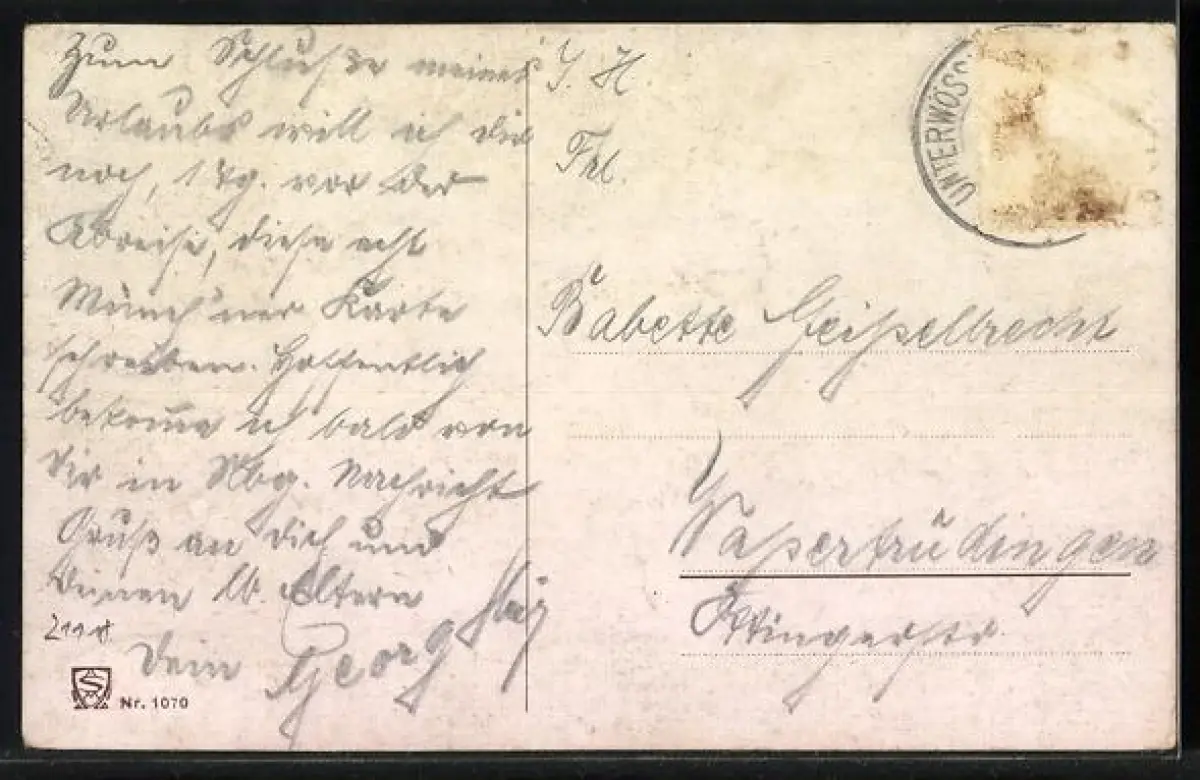 Zum Schluße meines
Urlaubs will ich dir
noch, 1 Tg. vor der
Abreise, diese echt
Münch'ner Karte
schreiben. Hoffentlich
bekomme ich bald von
Dir in Nbg. Nachricht
Gruß an Dich und
Deinen lb. Eltern
Dein Georg
Nr. 1070
I. H.
Frl.
Babette Geißelbrecht
Waßertrüdingen
UNTERWÖSS